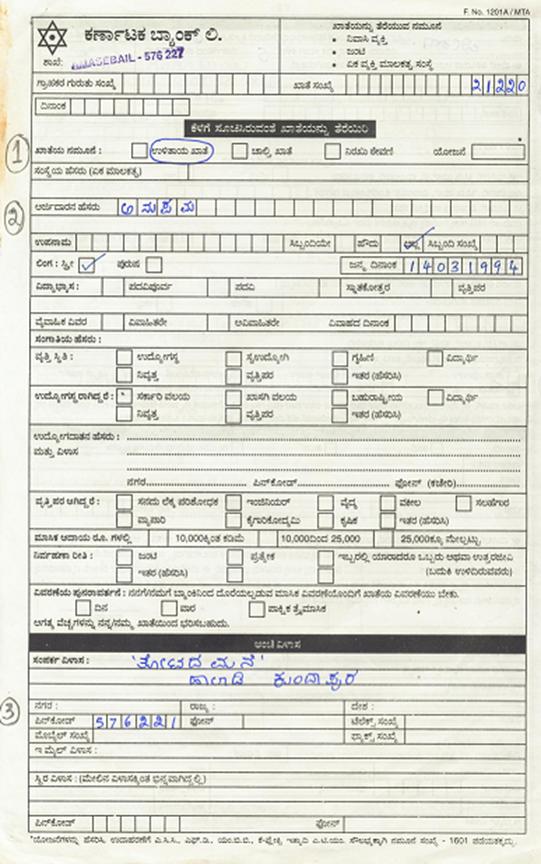 F. No. 1201A / MTA
ಕರ್ಣಾಟಕ ಬ್ಯಾಂಕ್ ಲಿ.
ಖಾತೆಯನ್ನು ತೆರೆಯುವ ನಮೂನೆ
• ನಿವಾಸಿ ವ್ಯಕ್ತಿ
• ಜಂಟಿ
• ಏಕ ವ್ಯಕ್ತಿ ಮಾಲಕತ್ವ ಸಂಸ್ಥೆ
ಶಾಖೆ: AMASEBAIL - 576 227
ಗ್ರಾಹಕರ ಗುರುತು ಸಂಖ್ಯೆ ಖಾತೆ ಸಂಖ್ಯೆ 21220
ದಿನಾಂಕ
ಕೆಳಗೆ ಸೂಚಿಸಿರುವಂತೆ ಖಾತೆಯನ್ನು ತೆರೆಯಿರಿ
1 ಖಾತೆಯ ನಮೂನೆ : ಉಳಿತಾಯ ಖಾತೆ ಚಾಲ್ತಿ ಖಾತೆ ನಿರಖು ಠೇವಣಿ ಯೋಜನೆ
ಸಂಸ್ಥೆಯ ಹೆಸರು (ಏಕ ಮಾಲಕತ್ವ)
2 ಅರ್ಜಿದಾರನ ಹೆಸರು ಅನುಪಮ
ಉಪನಾಮ ಸಿಬ್ಬಂದಿಯೇ ಹೌದು ಅಲ್ಲ ಸಿಬ್ಬಂದಿ ಸಂಖ್ಯೆ
ಲಿಂಗ : ಸ್ತ್ರೀ ಪುರುಷ ಜನ್ಮ ದಿನಾಂಕ 14031994
ವಿದ್ಯಾಭ್ಯಾಸ : ಪದವಿಪೂರ್ವ ಪದವಿ ಸ್ನಾತಕೋತ್ತರ ವೃತ್ತಿಪರ
ವೈವಾಹಿಕ ವಿವರ ವಿವಾಹಿತರೇ ಅವಿವಾಹಿತರೇ ವಿವಾಹದ ದಿನಾಂಕ
ಸಂಗಾತಿಯ ಹೆಸರು :
ವೃತ್ತಿ ಸ್ಥಿತಿ : ಉದ್ಯೋಗಸ್ಥ ಸ್ವಉದ್ಯೋಗಿ ಗೃಹಿಣಿ ವಿದ್ಯಾರ್ಥಿ
ನಿವೃತ್ತ ವೃತ್ತಿಪರ ಇತರ (ಹೆಸರಿಸಿ)
ಉದ್ಯೋಗಸ್ಥರಾಗಿದ್ದರೆ : ಸರ್ಕಾರಿ ವಲಯ ಖಾಸಗಿ ವಲಯ ಬಹುರಾಷ್ಟ್ರೀಯ ವಿದ್ಯಾರ್ಥಿ
ನಿವೃತ್ತ ವೃತ್ತಿಪರ ಇತರ (ಹೆಸರಿಸಿ)
ಉದ್ಯೋಗದಾತನ ಹೆಸರು :
ಮತ್ತು ವಿಳಾಸ
ನಗರ ಪಿನ್‌ಕೋಡ್ ಫೋನ್ (ಕಚೇರಿ)
ವೃತ್ತಿಪರ ಆಗಿದ್ದರೆ : ಸನದು ಲೆಕ್ಕ ಪರಿಶೋಧಕ ಇಂಜಿನಿಯರ್ ವೈದ್ಯ ವಕೀಲ ಸಲಹೆಗಾರ
ವ್ಯಾಪಾರಿ ಕೈಗಾರಿಕೋದ್ಯಮಿ ಕೃಷಿಕ ಇತರ (ಹೆಸರಿಸಿ)
ಮಾಸಿಕ ಆದಾಯ ರೂ. ಗಳಲ್ಲಿ 10,000ಕ್ಕಿಂತ ಕಡಿಮೆ 10,000ದಿಂದ 25,000 25,000ಕ್ಕೂ ಮೇಲ್ಪಟ್ಟು
ನಿರ್ವಹಣಾ ರೀತಿ : ಜಂಟಿ ಪ್ರತ್ಯೇಕ ಇಬ್ಬರಲ್ಲಿ ಯಾರಾದರೂ ಒಬ್ಬರು ಅಥವಾ ಉತ್ತರಜೀವಿ
ಇತರ (ಹೆಸರಿಸಿ) (ಬದುಕಿ ಉಳಿದಿರುವವರು)
ವಿವರಣೆಯ ಪುನರಾವರ್ತನೆ : ನನಗೆ/ನಮಗೆ ಬ್ಯಾಂಕಿನಿಂದ ದೊರೆಯಲ್ಪಡುವ ಮಾಸಿಕ ವಿವರಣೆಯೊಂದಿಗೆ ಖಾತೆಯ ವಿವರಣೆಯು ಬೇಕು.
ದಿನ ವಾರ ಪಾಕ್ಷಿಕ ತ್ರೈಮಾಸಿಕ
ಅಗತ್ಯ ವೆಚ್ಚಗಳನ್ನು ನನ್ನ/ನಮ್ಮ ಖಾತೆಯಿಂದ ಭರಿಸಬಹುದು.
ಅಂಚೆ ವಿಳಾಸ
ಸಂಪರ್ಕ ವಿಳಾಸ : 'ತೋಟದ ಮನೆ'
ಹಾಲಾಡಿ ಕುಂದಾಪುರ
3 ನಗರ : ರಾಜ್ಯ : ದೇಶ :
ಪಿನ್‌ಕೋಡ್ 576221 ಫೋನ್ ಟೆಲೆಕ್ಸ್ ಸಂಖ್ಯೆ
ಮೊಬೈಲ್ ಸಂಖ್ಯೆ ಫ್ಯಾಕ್ಸ್ ಸಂಖ್ಯೆ
ಇ ಮೈಲ್ ವಿಳಾಸ :
ಸ್ಥಿರ ವಿಳಾಸ : (ಮೇಲಿನ ವಿಳಾಸಕ್ಕಿಂತ ಭಿನ್ನವಾಗಿದ್ದಲ್ಲಿ)
ಪಿನ್‌ಕೋಡ್ ಫೋನ್